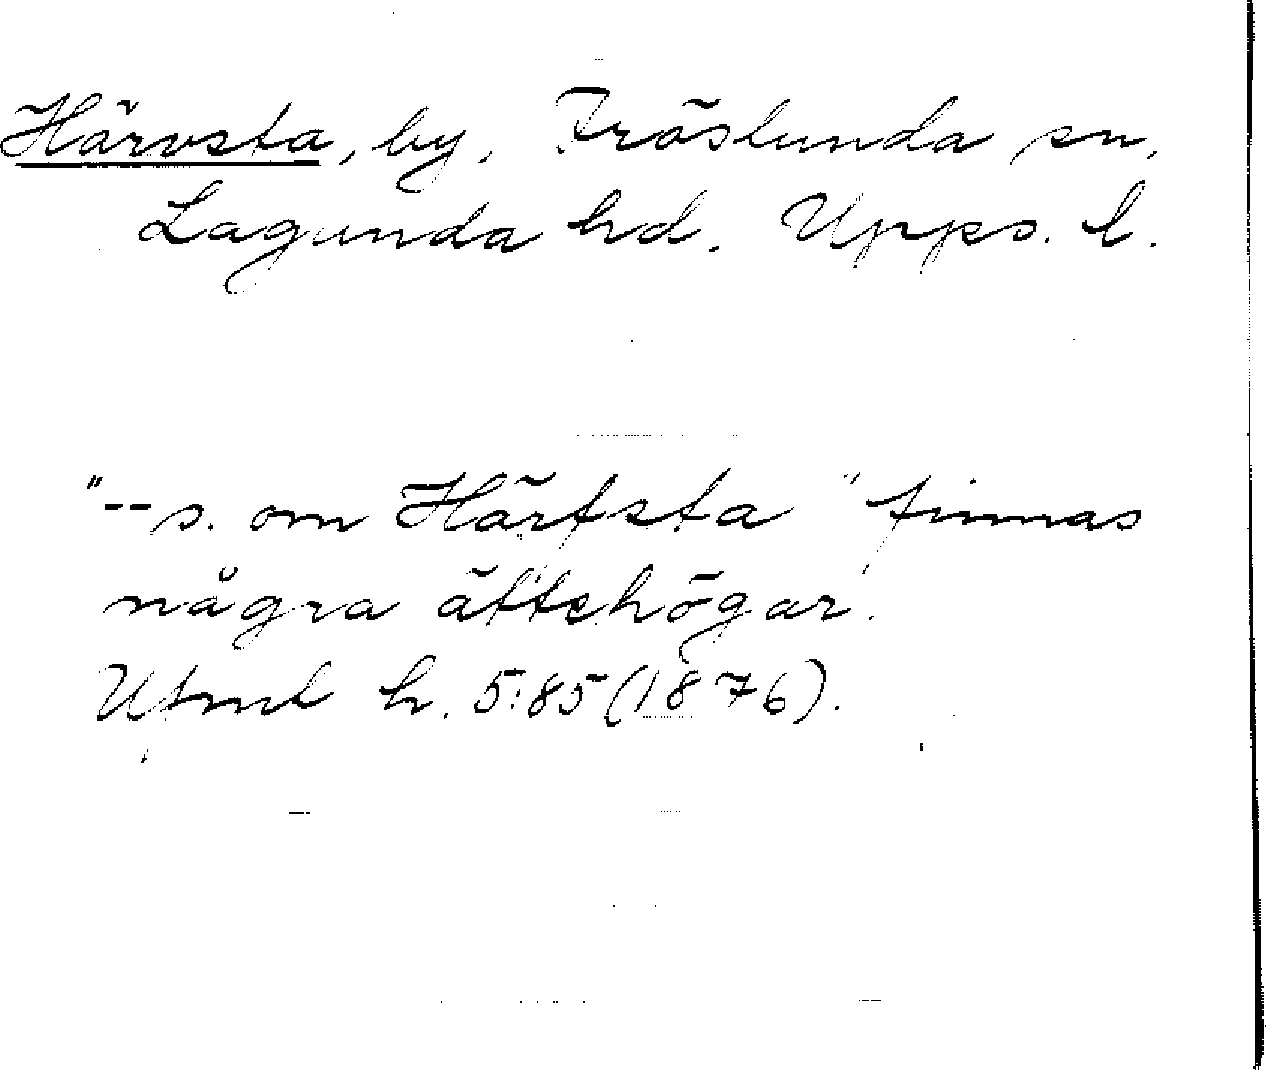 Härvsta, by, Fröslunda sn,
Lagunda hd. Upps. l.
"-- s. om Härfsta" finnas
några ättehögar.
Ufmt h. 5:85 (1876).